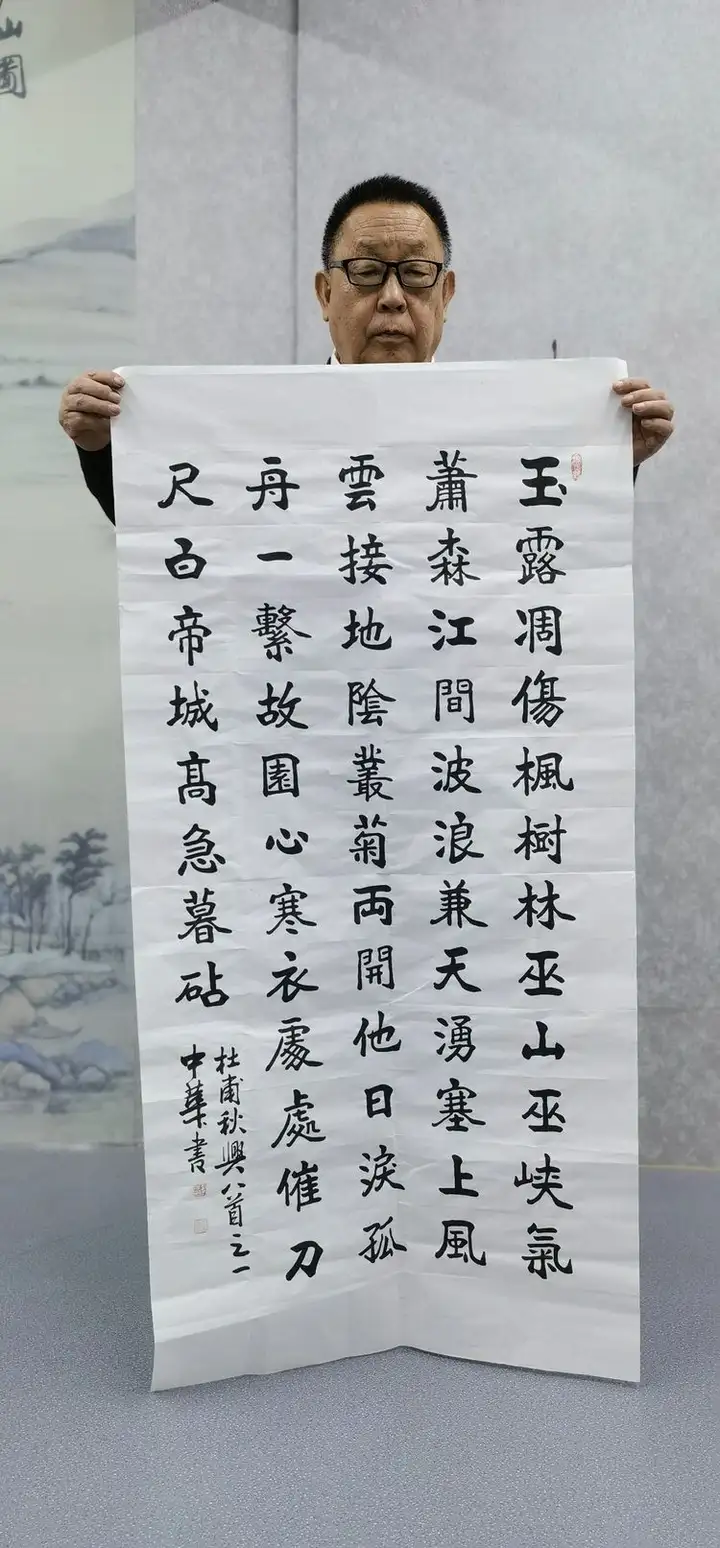 玉露凋傷楓樹林巫山巫峡氣
蕭森江間波浪兼天湧塞上風
雲接地陰叢菊両開他日淚孤
舟一繫故園心寒衣處處催刀
尺白帝城髙急暮砧
杜甫秋興八首之一
中華書
山圖